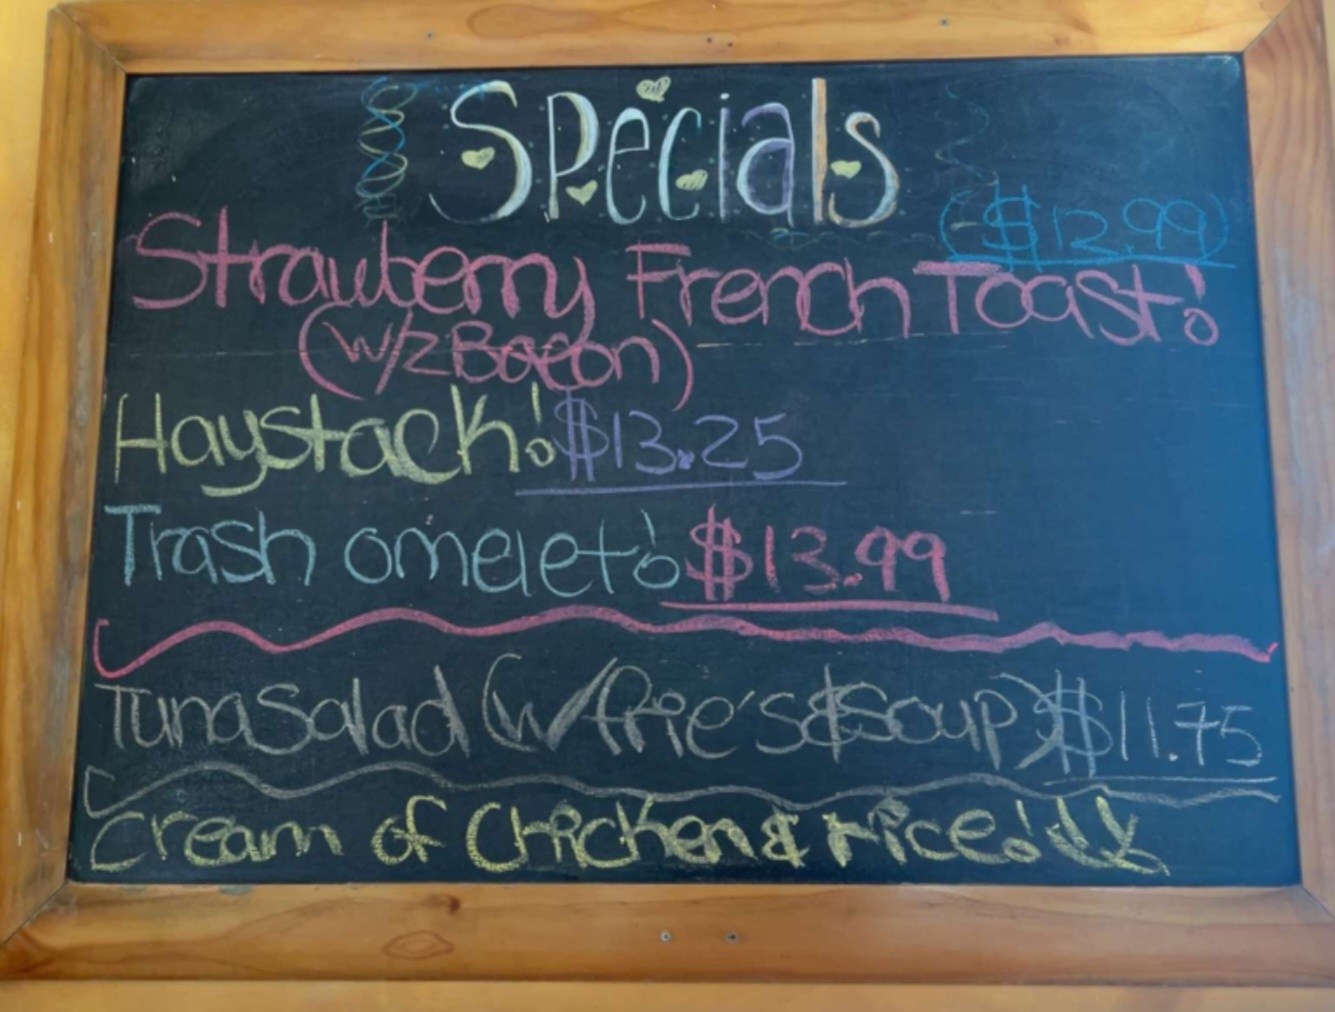 Specials
($12.99)
Strawberry French Toast!
(w/2 Bacon)
Haystack! $13.25
Trash omelet! $13.99
Tuna Salad (w/frie's & Soup) $11.75
Cream of Chicken & rice!